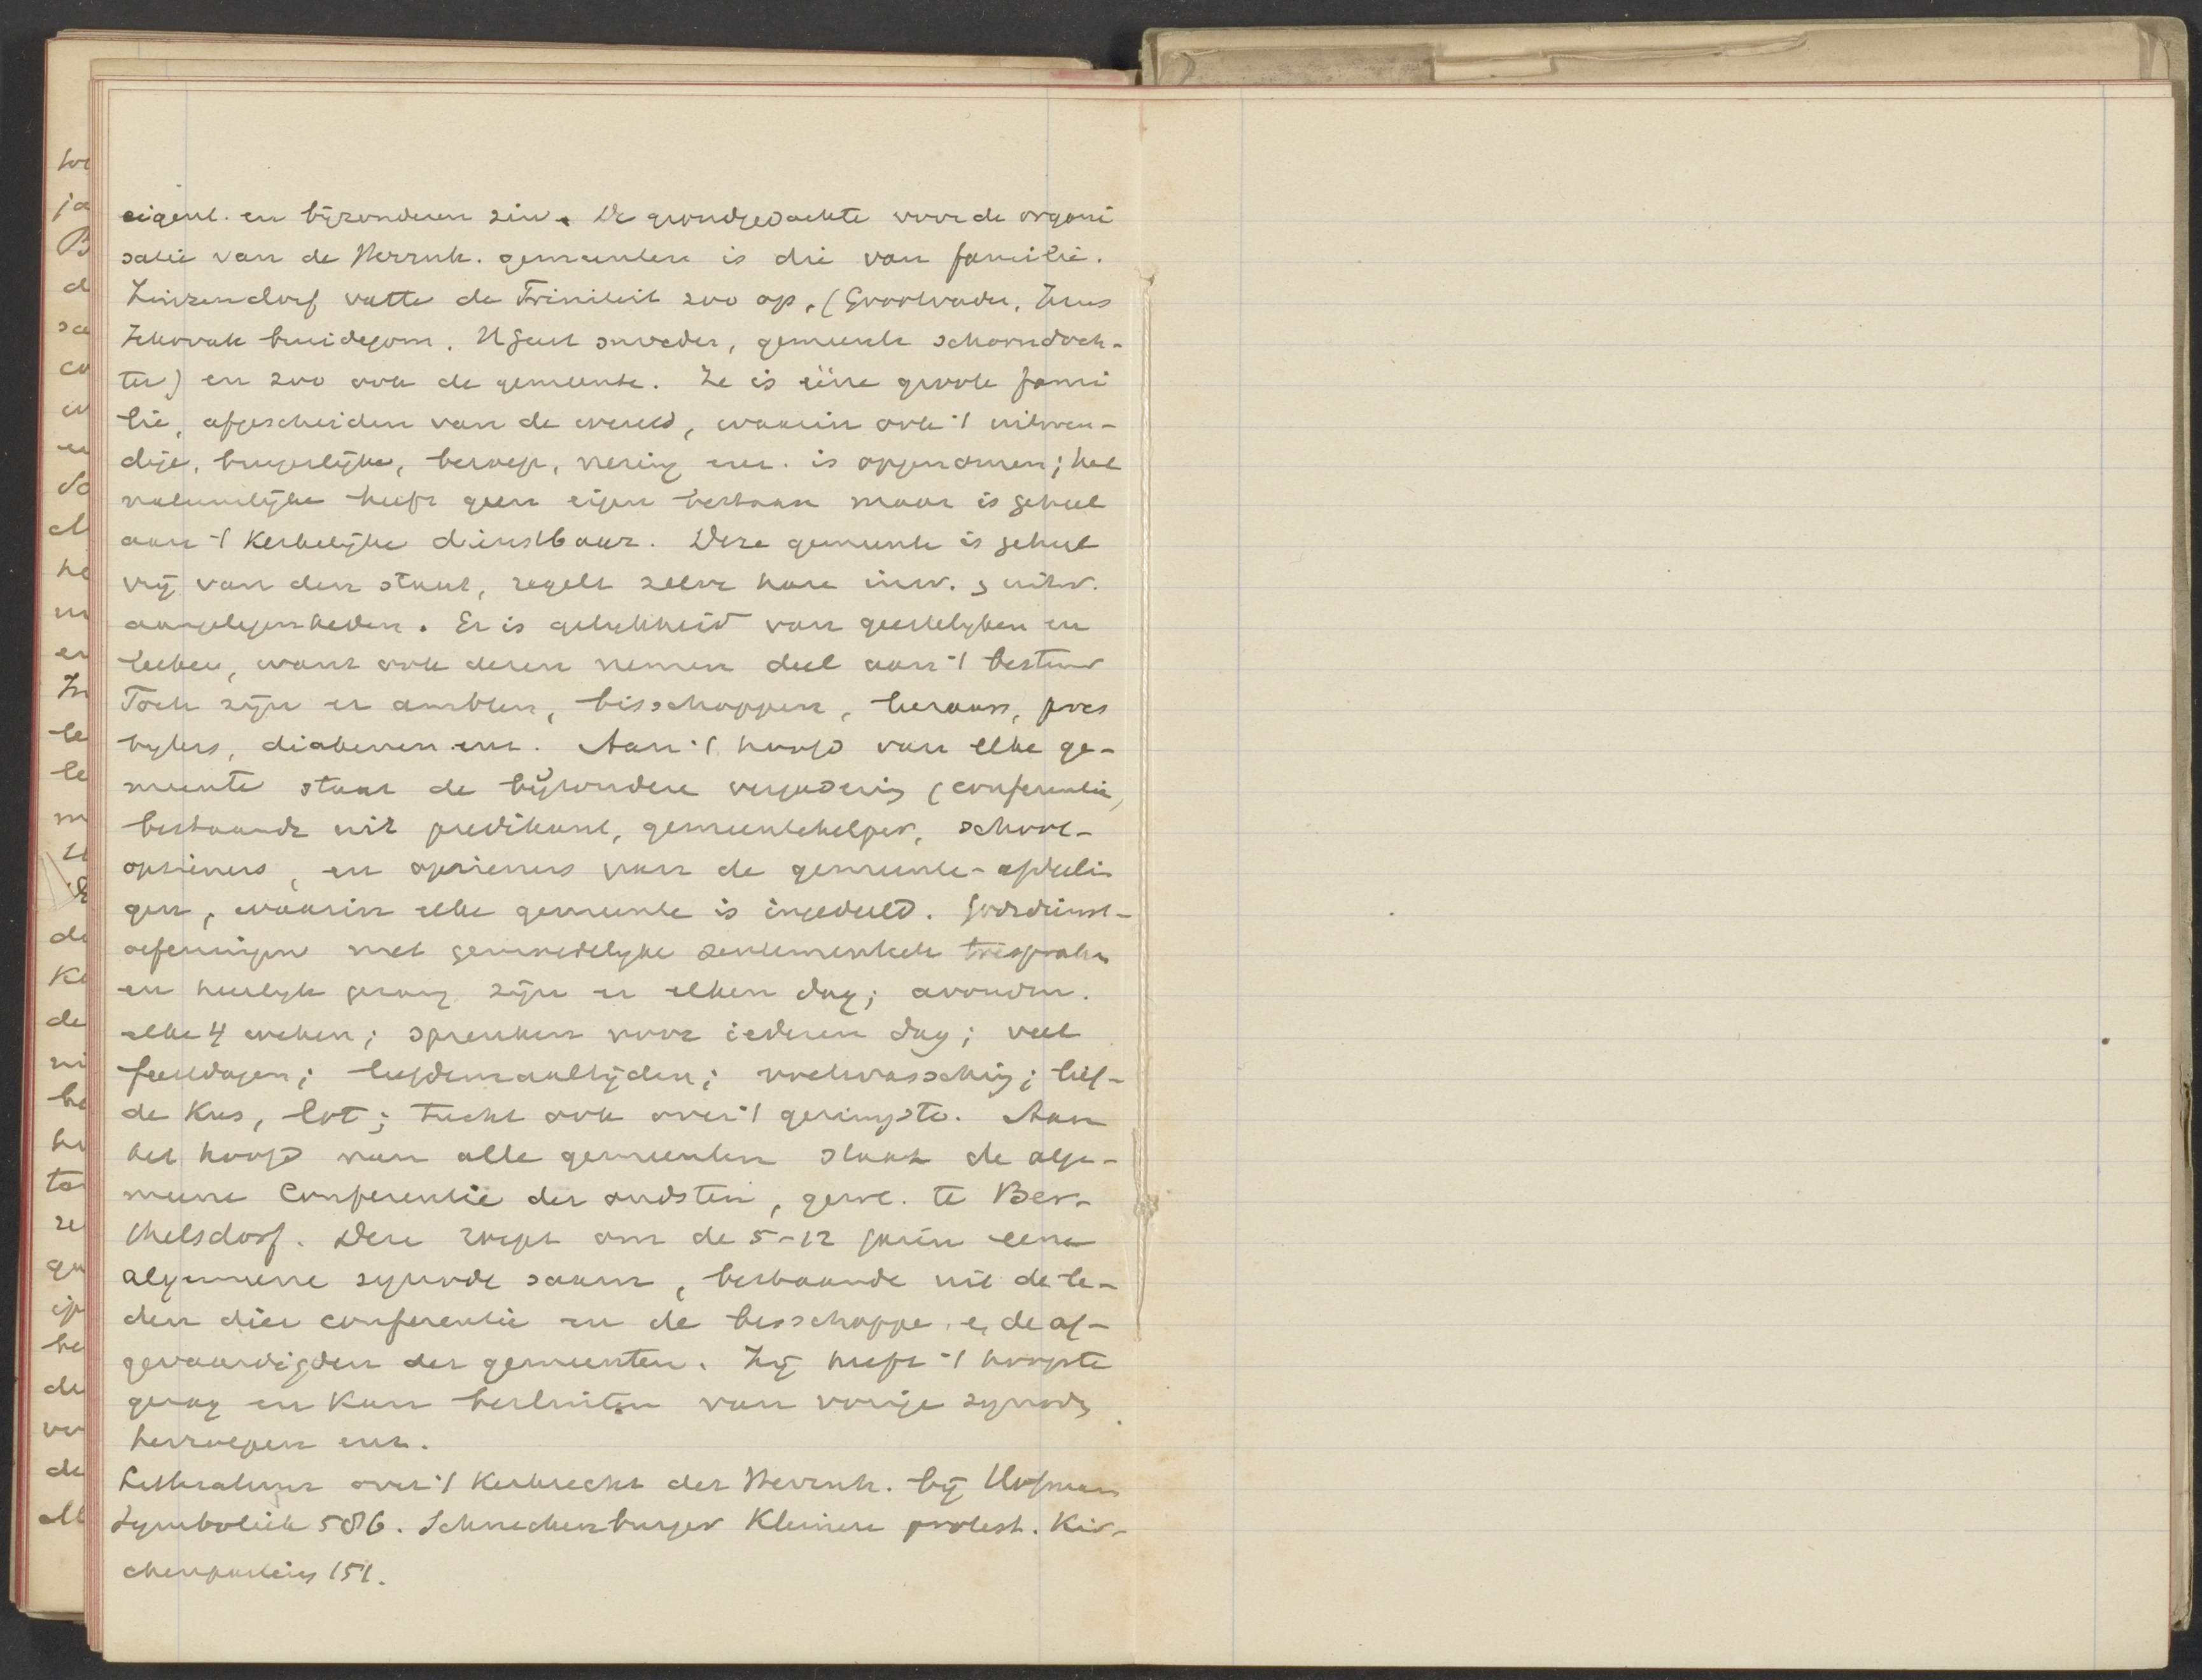 eigenl. en bijzonderen zin. De grondgedachte voor de organi
satie van de Herrnh. gemeenten is die van familie.
Zinzendorf vatte de Triniteit zoo op, (Grootvader, Jezus
Jehovah bruidegom. H Geest moeder, gemeente schoondoch-
ter) en zoo ook de gemeente. Ze is eéne groote fami
lie, afgescheiden van de wereld, waarin ook 't uitwen-
dige, burgerlijke, beroep, nering enz. is opgenomen; het
natuurlijke heeft geen eigen bestaan maar is geheel
aan 't Kerkelijke dienstbaar. Deze gemeente is geheel
vrij van den staat, regelt zelve hare inw. & uitw.
aangelegenheden. Er is gelykheid van geestelyken en
leeken, want ook dezen nemen deel aan 't bestuur
Toch zijn er ambten, bisschoppen, leeraars, pres
byters, diakenen enz. Aan 't hoofd van elke ge-
meente staat de bijzondere vergadering (conferentie,
bestaande uit predikant, gemeentehelper, school-
opzieners, en opzieners van de gemeente-afdeelin
gen, waarin elke gemeente is ingedeeld. Godsdienst-
oefeningen met gemoedelyke sentimenteele toespraken
en heerlyk gezang zijn er elken dag; avondm.
elke 4 weken; spreuken voor iederen dag; veel
feestdagen; liefdemaaltijden; voetwassching; lief-
de Kus, lot; tucht ook over 't geringste. Aan
het hoofd van alle gemeenten staat de alge-
meene Conferentie der oudsten, gew. te Ber-
thelsdorf. Deze roept om de 5-12 jaren eene
algemeene synode saam, bestaande uit de le-
den dier conferentie en de bisschoppe. e, de af-
gevaardigden der gemeenten. Zij heeft 't hoogste
gezag en kan besluiten van vorige synodes
herroepen enz.
Litteratuur over 't Kerkrecht der Herrnh. bij Hofmann
Symboliek 586. Schneckenburger Kleinere protest. Kir-
chenparteien 151.